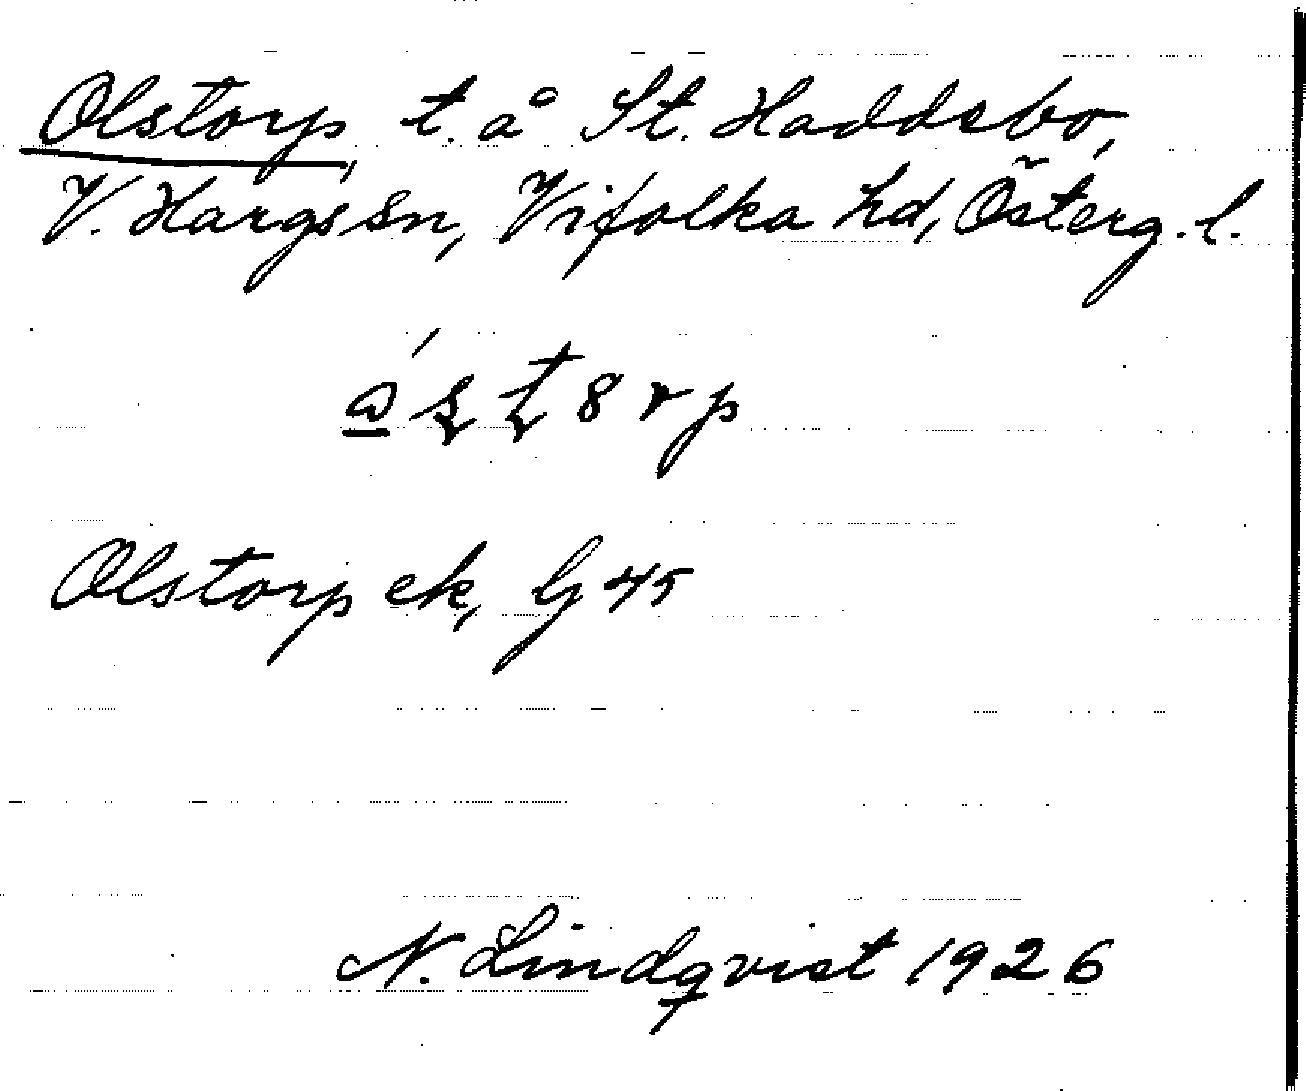 Olstorp, t. å St. Haddebo,
V. Hargs sn, Vifolka hd, Österg. l.
Olstorp ek, G 45
N. Lindqvist 1926